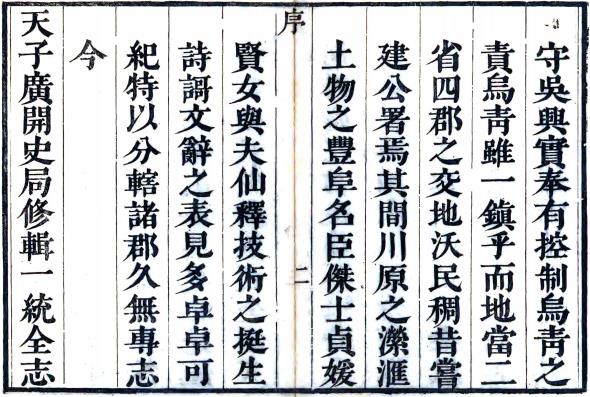 守吳興實奉有控制烏青之
責烏青雖一鎮乎而地當二
省四郡之交地沃民稠昔嘗
建公署焉其間川原之瀠滙
土物之豐阜名臣傑士貞媛
序
二
賢女與夫仙釋技術之挺生
詩謌文辭之表見多卓卓可
紀特以分轄諸郡久無專志
今
天子廣開史局修輯一統全志